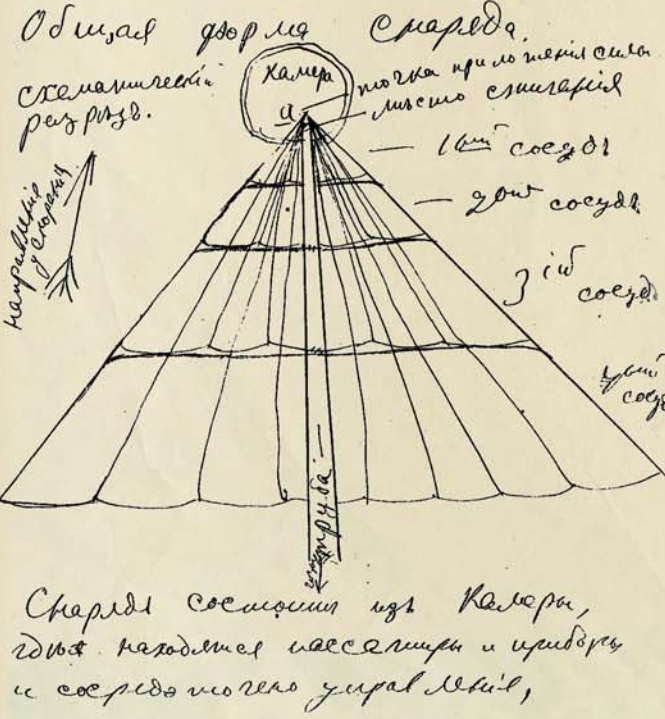 Общая форма Снаряда.
схематическій
разрѣзъ.
Камера
точка приложенія силы
A
мѣсто сжиганія
1ый сосудъ
2ой сосудъ
3ій сосудъ
4ый сосудъ
направленіе
ускоренія
труба
Снарядъ состоитъ изъ Камеры,
гдѣ находятся пассажиры и приборы
и сосредоточено управленіе,